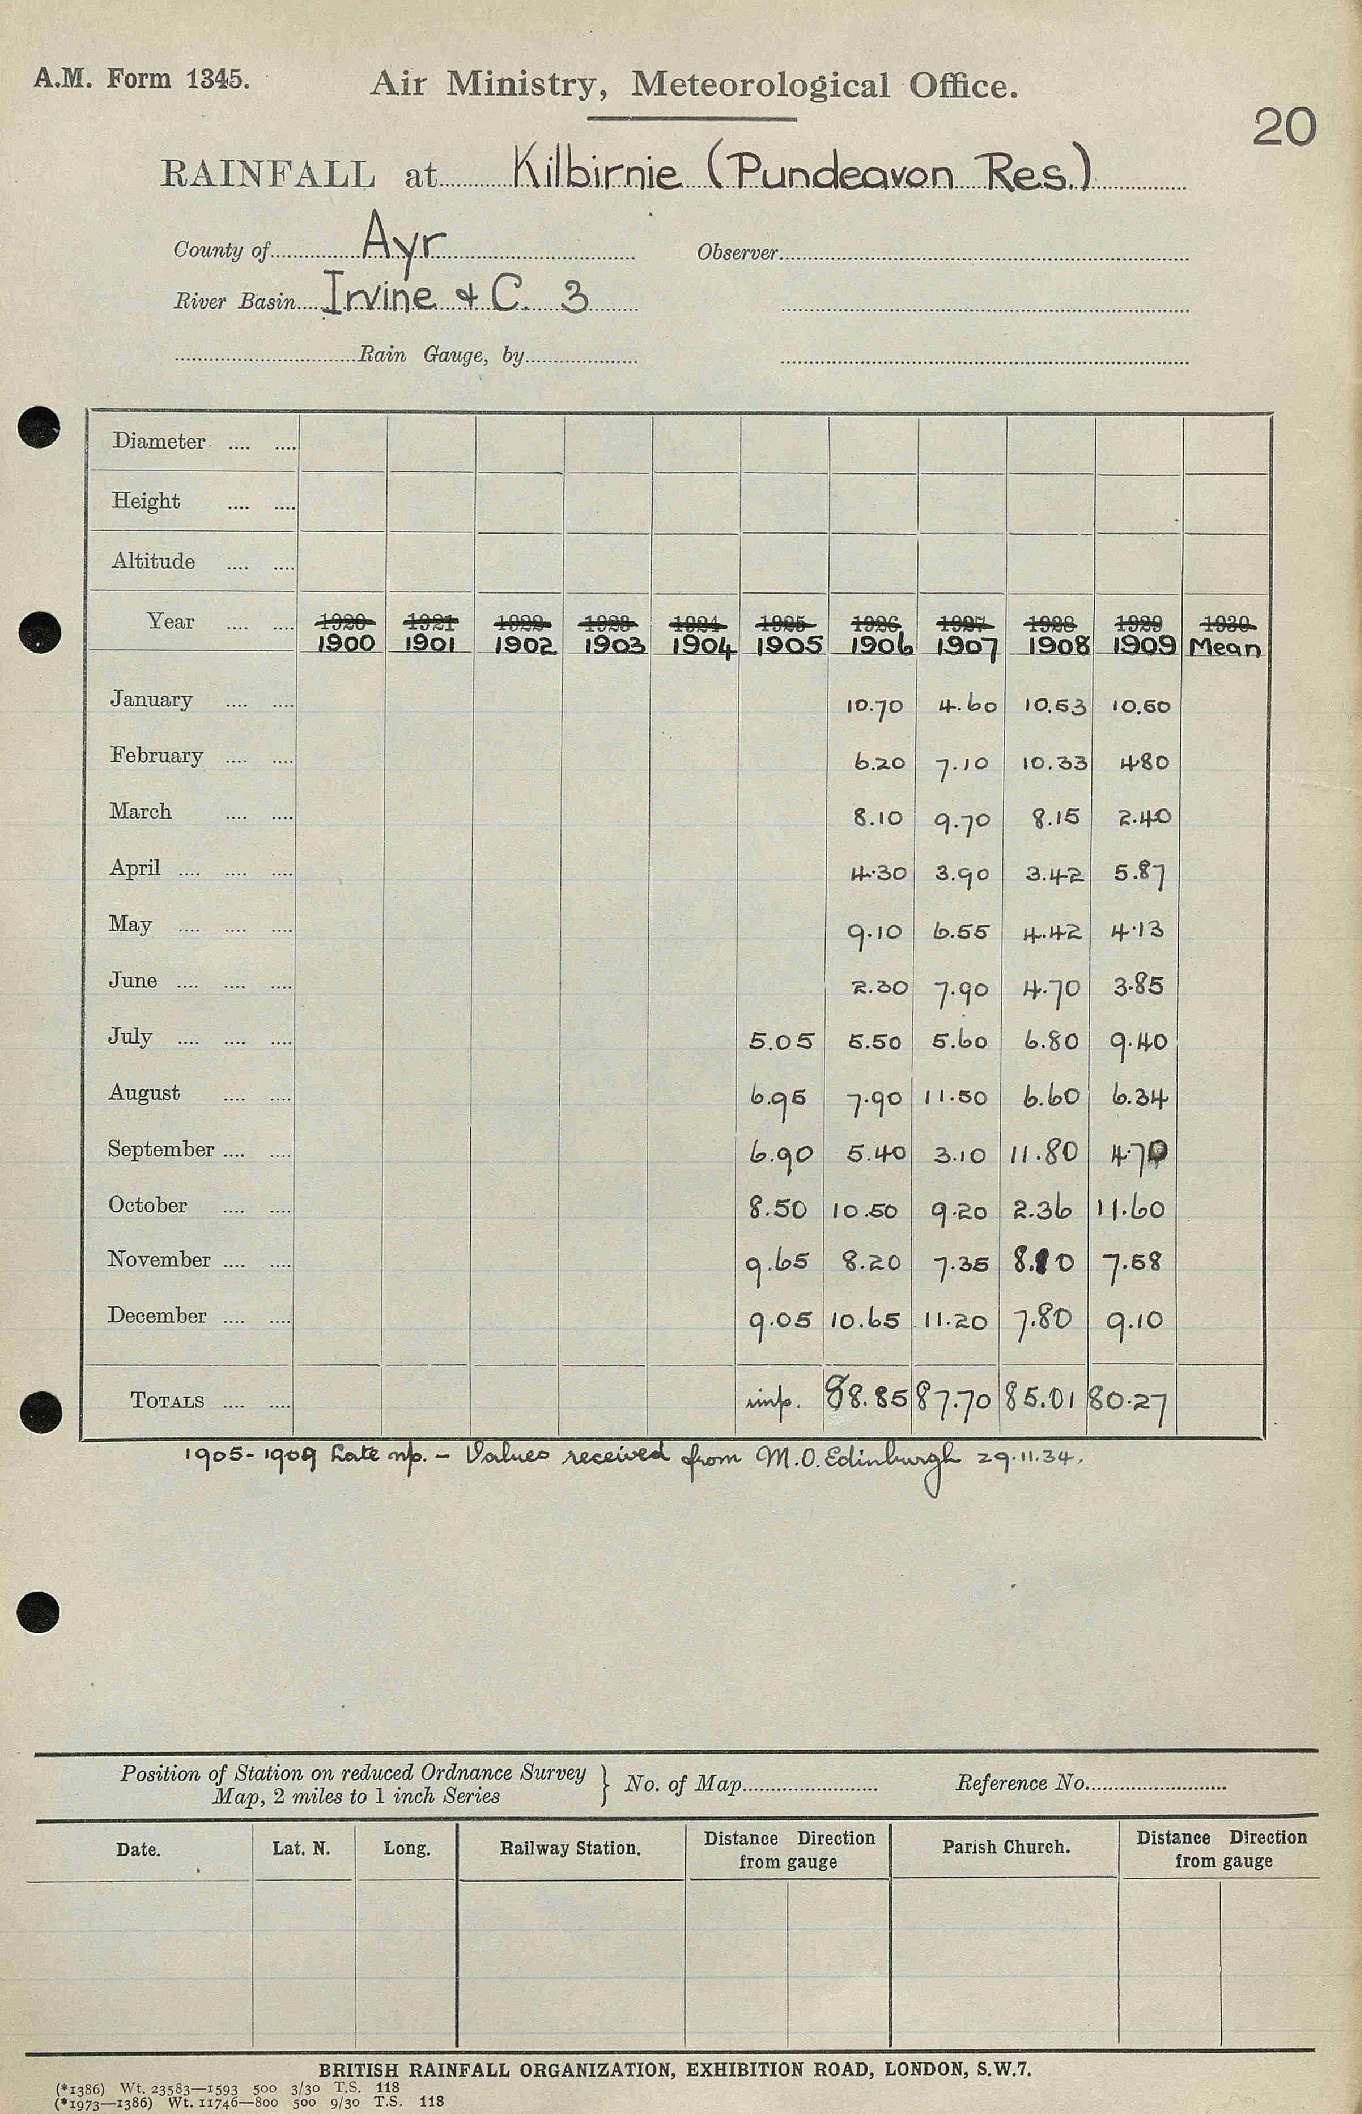 A.M. Form 1345. Air Ministry, Meteorological Office.
20
RAINFALL at Kilbirnie (Pundeavon Res.)
County of Ayr Observer
River Basin Irvine & C. 3
Rain Gauge, by
Diameter
Height
Altitude
Year 1920 1921 1922 1923 1924 1925 1926 1927 1928 1929 1930
1900 1901 1902 1903 1904 1905 1906 1907 1908 1909 Mean
January 10.70 4.60 10.53 10.50
February 6.20 7.10 10.33 4.80
March 8.10 9.70 8.15 2.40
April 4.30 3.90 3.42 5.87
May 9.10 6.55 4.42 4.13
June 2.30 7.90 4.70 3.85
July 5.05 5.50 5.60 6.80 9.40
August 6.95 7.90 11.50 6.60 6.34
September 6.90 5.40 3.10 11.80 4.70
October 8.50 10.50 9.20 2.36 11.60
November 9.65 8.20 7.35 8.10 7.58
December 9.05 10.65 11.20 7.80 9.10
TOTALS imp. 88.85 87.70 85.01 80.27
1905-1909 Late np. - Values received from M.O. Edinburgh 29.11.34.
Position of Station on reduced Ordnance Survey
Map, 2 miles to 1 inch Series } No. of Map Reference No.
Date. Lat. N. Long. Railway Station. Distance Direction from gauge Parish Church. Distance Direction from gauge
BRITISH RAINFALL ORGANIZATION, EXHIBITION ROAD, LONDON, S.W.7.
(*1386) Wt. 23583—1593 500 3/30 T.S. 118
(*1973—1386) Wt. 11746—800 500 9/30 T.S. 118